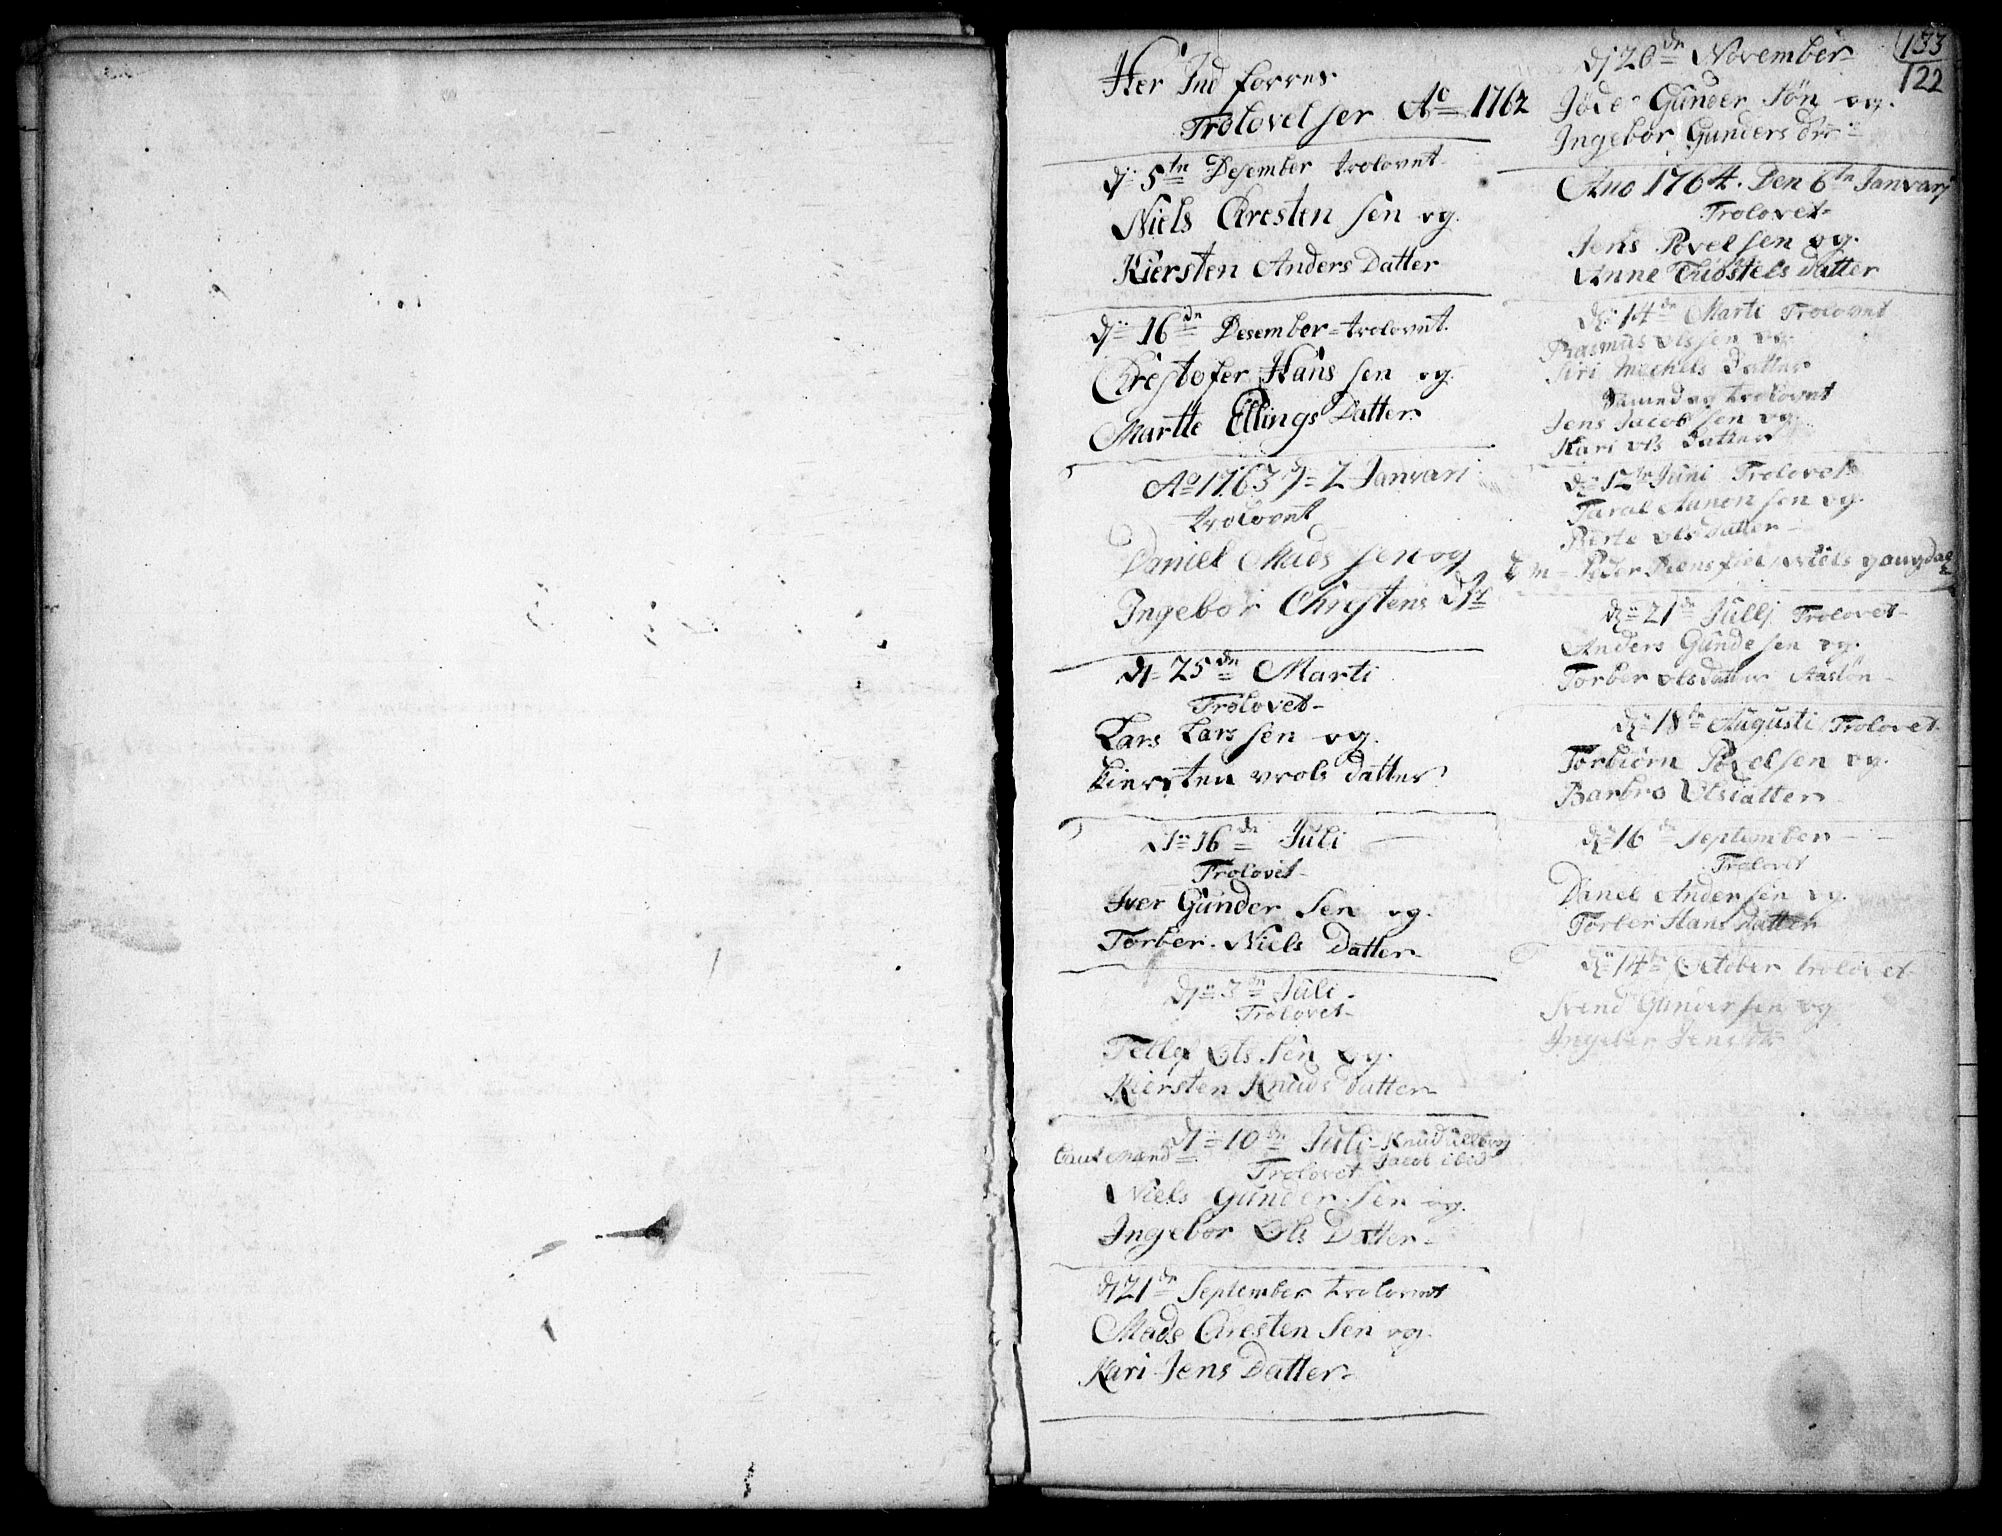 Her Ind förres
Trolovelser Ao 1762
dj 5tn Desember trolovet
Niels Chresten sen og
Kiersten Anders Datter
dj 16dn Desember trolovet
Chrestofer Hans sen og
Martte Ellings Datter
Ao 1763 dj 2 Janvari
trolovet
Daniel Mads sen og
Ingebor Chrestens dtr
dj 25dn Marti
Trolovet
Lars Lars sen og
Kiersten Datter
dj 16dn Juli
Trolovet
Iver Gunder Sen og
Torber Niels Datter
dj 3dn Juli
Trolovet
Tellef Ols Sen og
Kiersten Knuds Datter
dj 10dn Juli Knud
Caut Mænd Jacob ibid
Trolovet
Niels Gunder Sen og
Ingebor Ols Datter
dj 21dn September trolovet
Mads Chresten Sen og
Kari Jens Datter
133
122
dj 20dn November
Gunder Sön og
Ingebor Gunders dtr
Ano 1764. Den 6tn Janvarj
Trolovet
Jens Povel sen og
Anne Datter
dj 14dn Marti Trolovet
Rasmus Olssen og
Siri Mechels Datter
trolovet
Jens Jacob sen og
Kari Ols Datter
dj 12tn Juni Trolovet
Taral Aanon sen og
Berte Olsdatter
Peder Niels
dj 21dn Julij Trolovet
Anders Gundesen og
Torber Olsdatter
dj 18tn Augusti Trolovet
Torbiörn Povelsen og
Barbro
dj 16dn September
Trolovet
Danel Andersen og
Torber Hans Datter
dj 14tn October trolovet
Svend Gundersen og
Ingebor Jensdtr